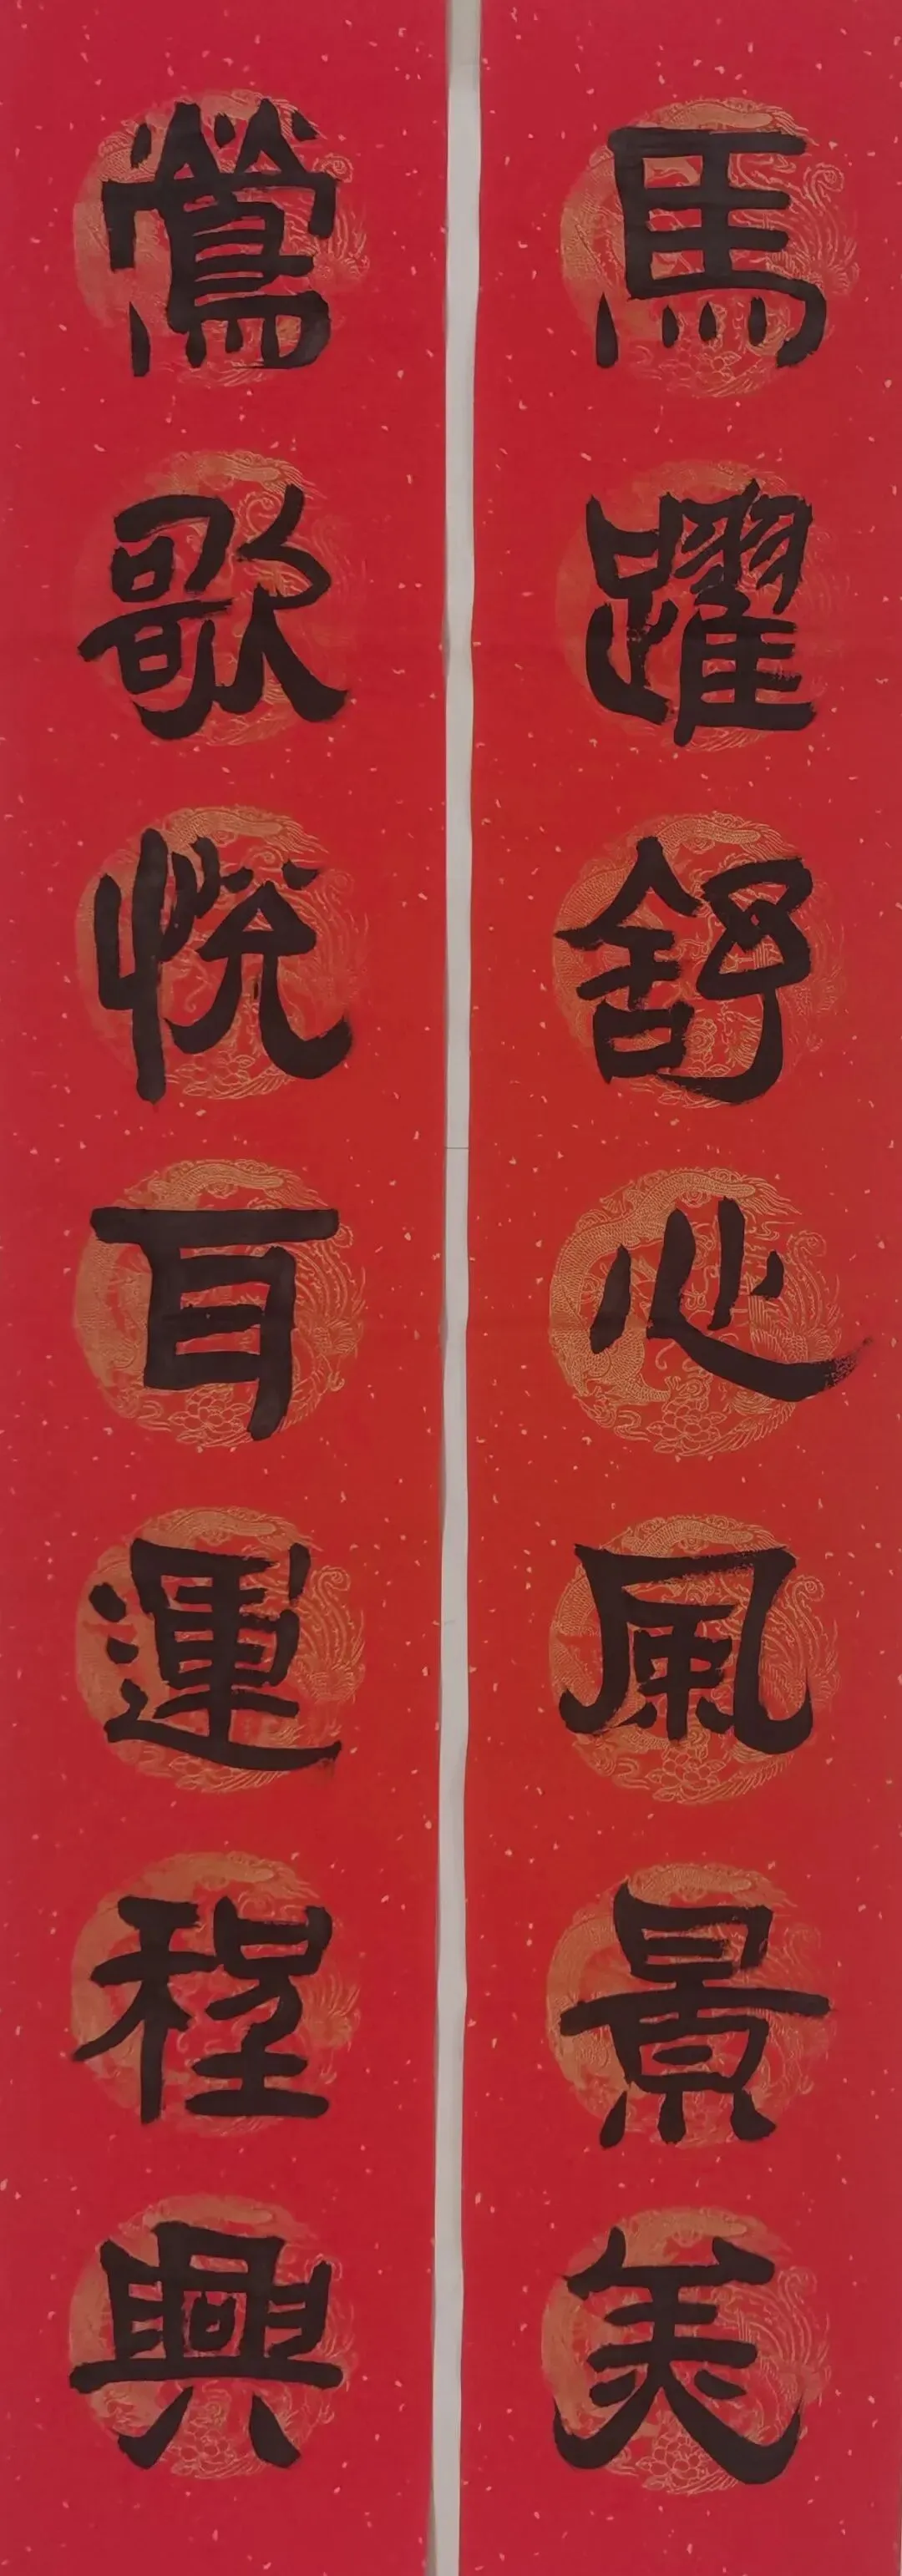 馬躍舒心風景美
鶯歌悅耳運程興